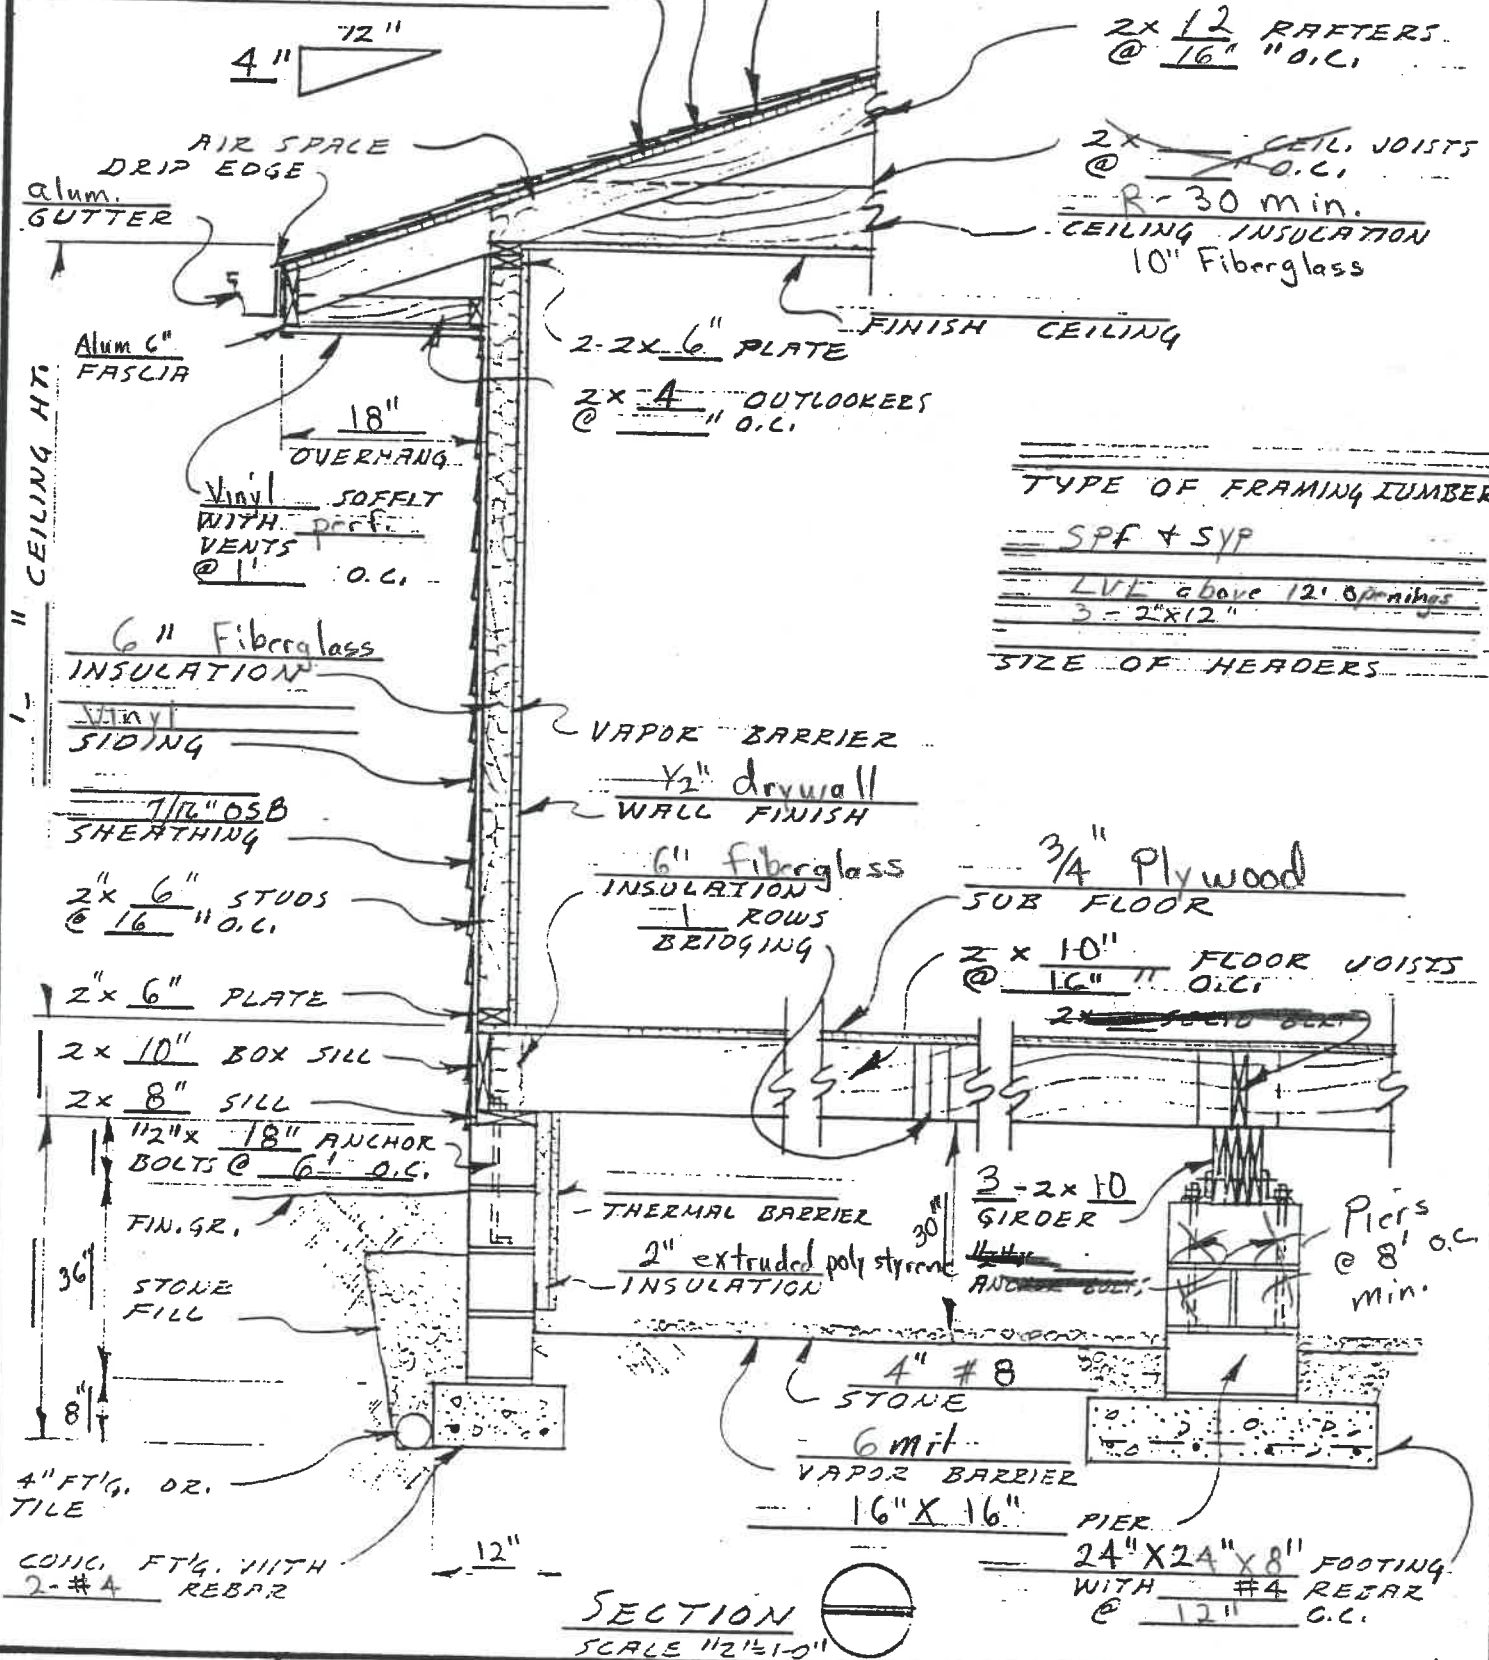 12"
4"
2x 12 RAFTERS
@ 16" "O.C.
AIR SPACE
DRIP EDGE
alum.
GUTTER
2x CEIL. JOISTS
@ " O.C.
R-30 min.
CEILING INSULATION
10" Fiberglass
FINISH CEILING
Alum 6"
FASCIA
2-2x 6" PLATE
2x 4 OUTLOOKERS
@ " O.C.
18"
OVERHANG
Vinyl SOFFIT
WITH perf.
VENTS
@ 1' O.C.
'- " CEILING HT.
TYPE OF FRAMING LUMBER
SPF & SYP
LVL above 12' Openings
3 - 2"x12"
SIZE OF HEADERS
6" Fiberglass
INSULATION
Vinyl
SIDING
7/16" OSB
SHEATHING
VAPOR BARRIER
1/2" drywall
WALL FINISH
6" Fiberglass
INSULATION
1 ROWS
BRIDGING
3/4" Plywood
SUB FLOOR
2 x 10" FLOOR JOISTS
@ 16" " O.C.
2"x 6" STUDS
@ 16 "O.C.
2"x 6" PLATE
2x 10" BOX SILL
2x 8" SILL
1/2"x 18" ANCHOR
BOLTS @ 6' O.C.
FIN. GR.
STONE
FILL
36"
8"
THERMAL BARRIER
2" extruded polystyrene
INSULATION
30"
3-2x 10
GIRDER
ANCHOR BOLTS
Piers
@ 8' O.C.
min.
4" # 8
STONE
6 mil
VAPOR BARRIER
16" X 16"
PIER
24" X 24" X 8" FOOTING
WITH #4 REBAR
@ 12" O.C.
4" FT'G. DR.
TILE
CONC. FT'G. WITH
2-#4 REBAR
12"
SECTION
SCALE 1/2"=1'-0"